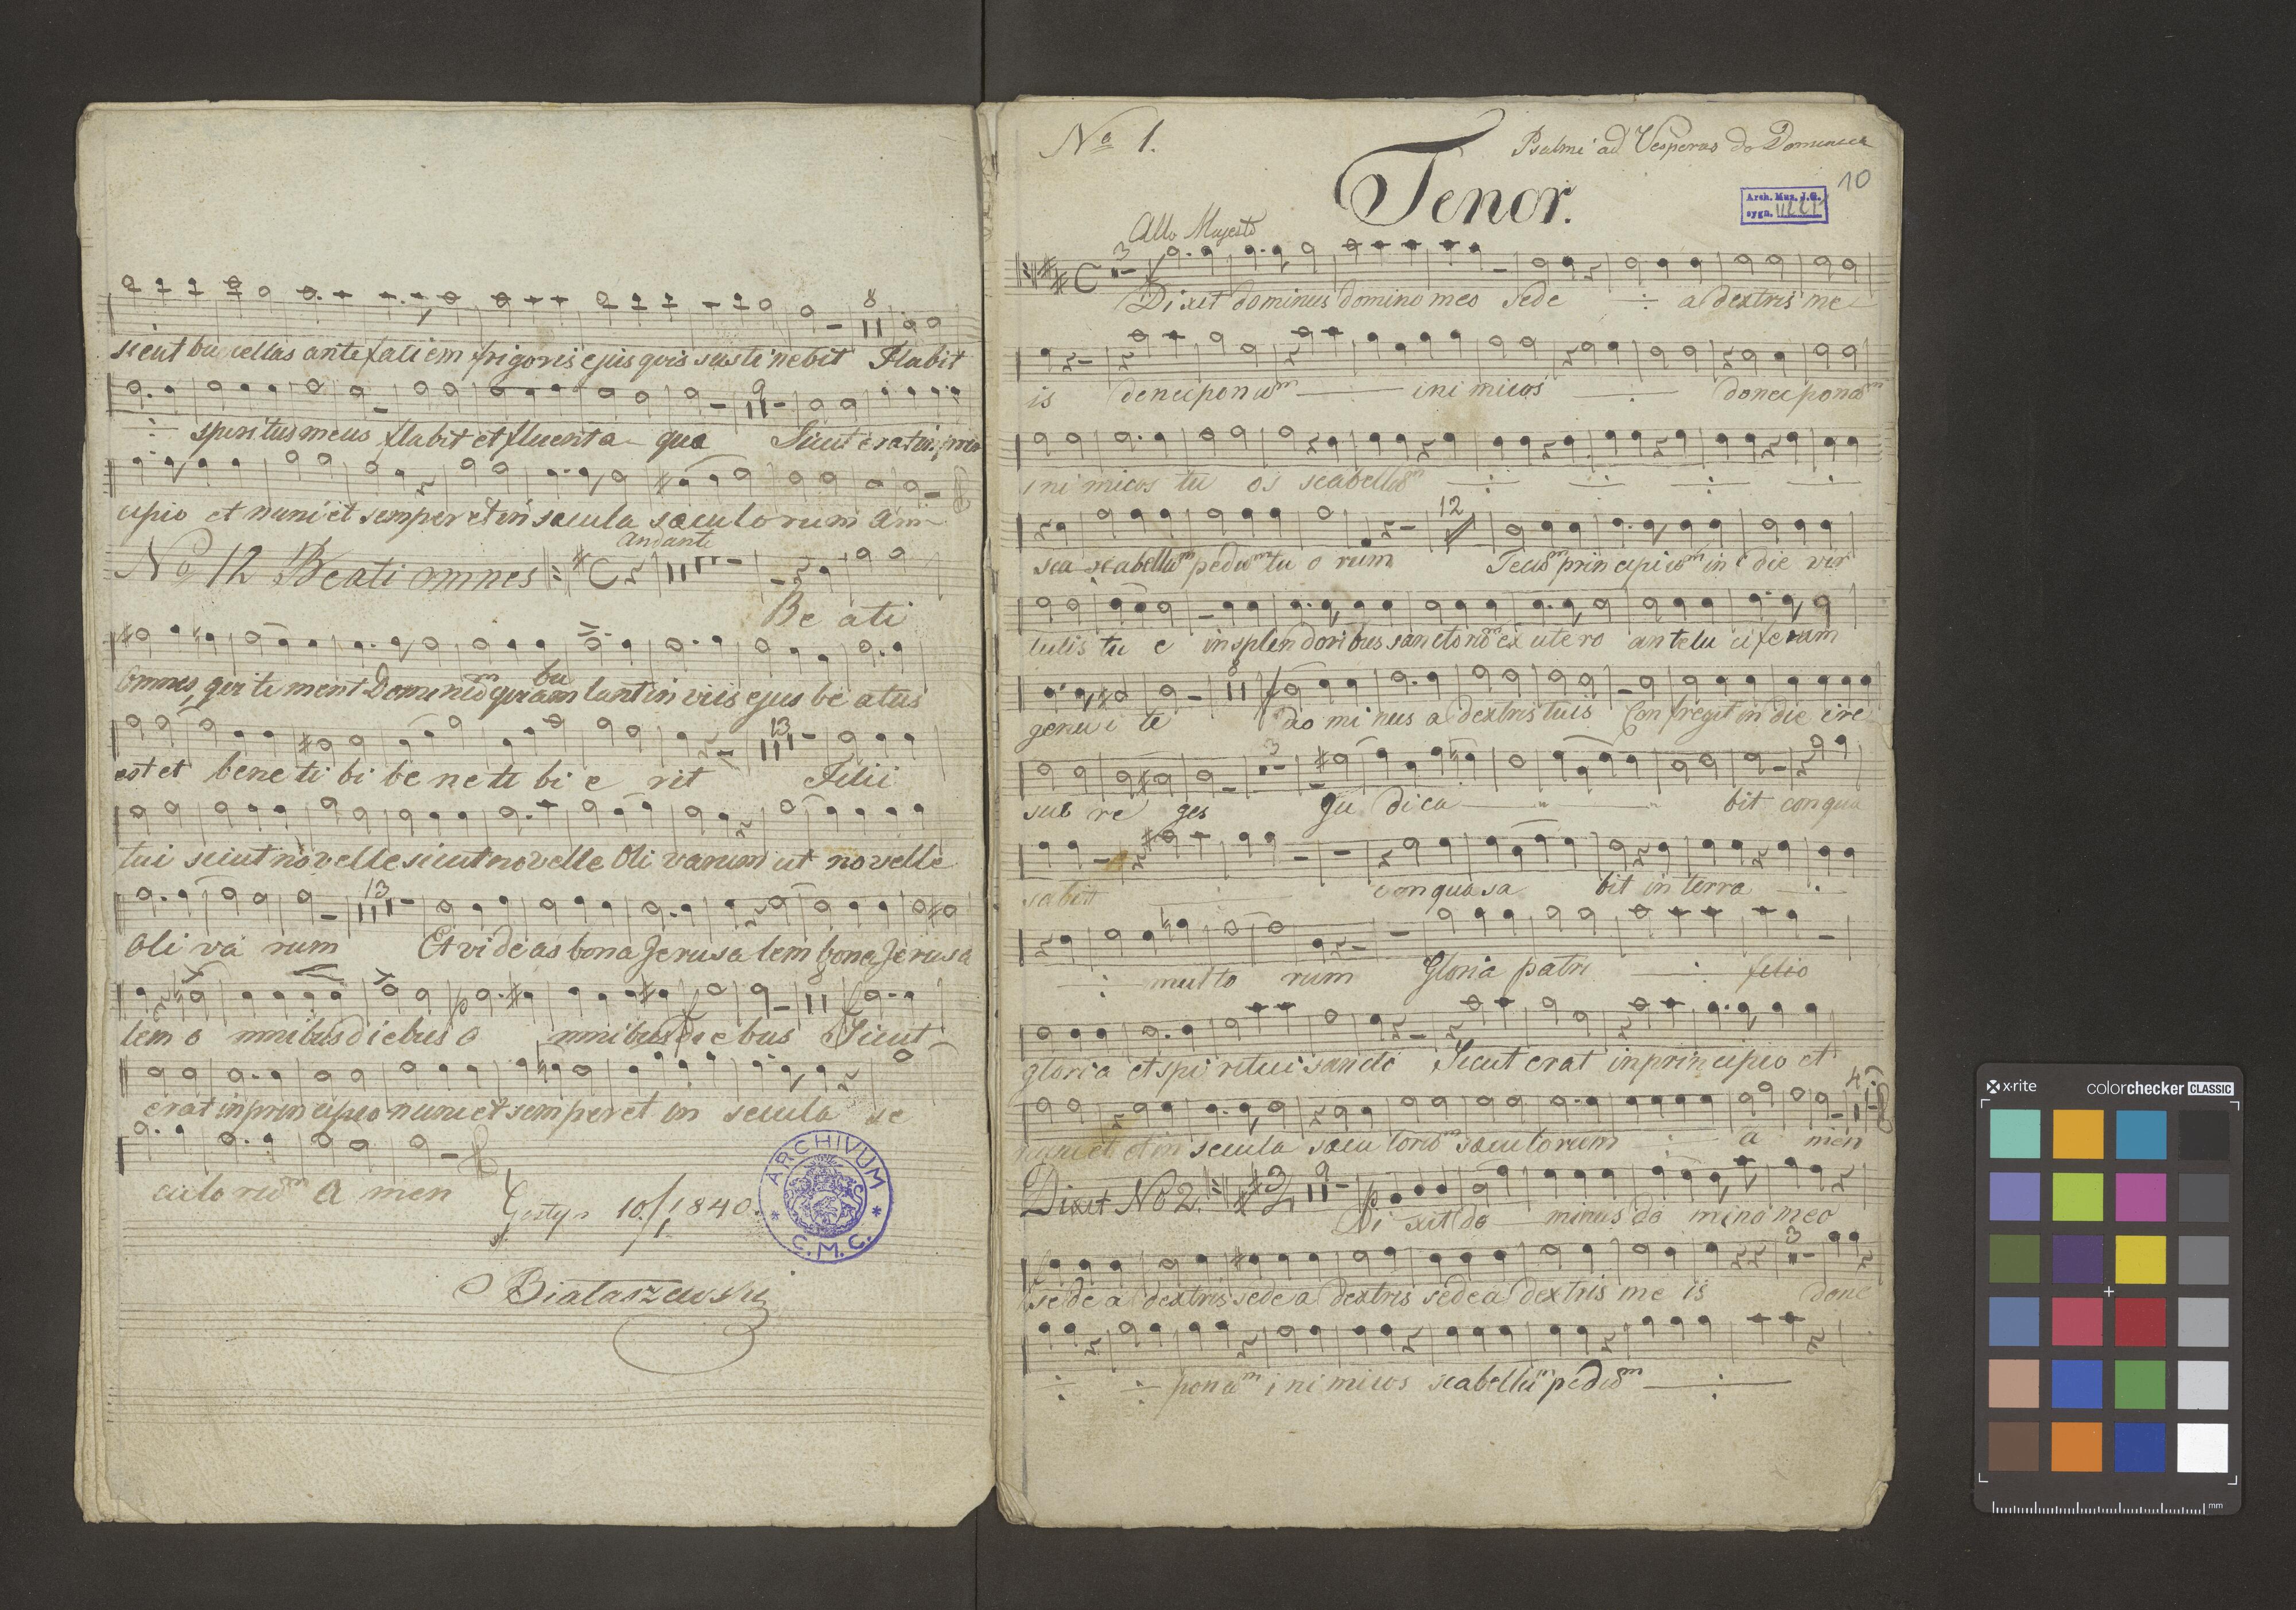 8
sicut buccellas ante fatiem frigoris ejus qvis sustinebit Flabit
9
spiritus meus flabit et fluent a qua Sicut erat in prin
cipio et nunc et semper et in sæcula sæculorum Am
Andante
No 12 Beati omnes
Be ati
Omnes, qui timent Dominum qui ambulant in viis ejus be atus
13
est et bene ti bi be ne ti bi e rit Filii
tui sicut novelle sicut novelle Oli varum ut novelle
13
Oli va rum Et vide as bona Jerusa lem bona Jerusa
lem o mnibus diebus o mnibus di e bus Sicut
erat in prin cipio nunc et semper et in secula se
culo rum A men
Gostyn 10/1 1840.
Bialaszewski
ARCHIVUM
* C.M.C. *
No 1.
Psalmi ad Vesperas do Dominica
10
Tenor.
Arch. Muz. J.G.
sygn.
Allo Majesto
3
Dixit dominus domino meo sede a dextris me
is donec ponam inimicos donec ponam
inimicos tu os scabellum
12
sca scabellum pedum tu o rum Tecum principium in die vir
tutis tu e in splendoribus sanctorum ex utero ante lu ciferum
8
genu i te do mi nus a dextris tuis Confregit in die ire
3
sue re ges Ju dica bit conqua
sabit conquasa bit in terra
multo rum Gloria patri filio
gloria et spi ritui sancto Sicut erat in principio et
4
nunc et et in secula sæcu lorum sæculorum a men
3 9
Dixit No 2.
Di xit do minus do mino meo
3
sede a dextris sede a dextris sede a dextris me is done
ponam inimicos scabellum pedum
x-rite colorchecker CLASSIC
mm